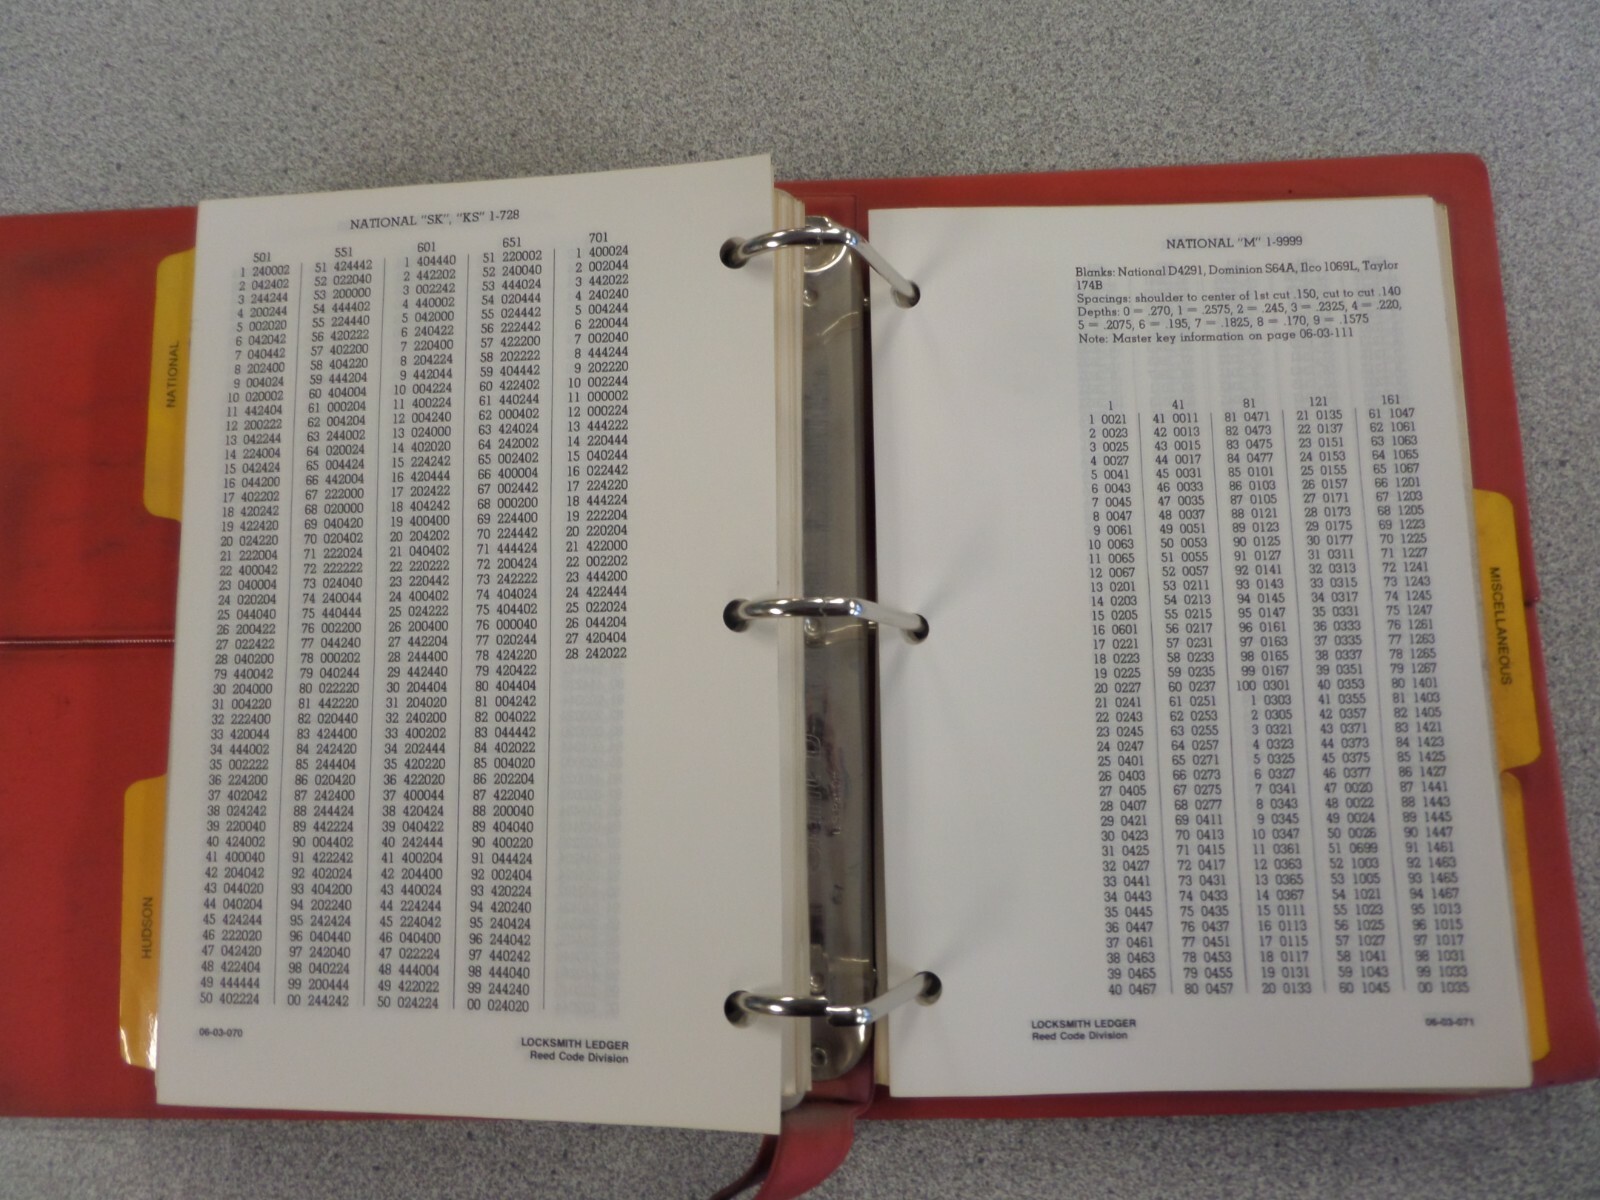 NATIONAL
HUDSON
NATIONAL "SK", "KS" 1-728
501 551 601 651 701
1 240002 51 424442 1 404440 51 220002 1 400024
2 042402 52 022040 2 442202 52 240040 2 002044
3 244244 53 200000 3 002242 53 444024 3 442022
4 200244 54 444402 4 440002 54 020444 4 240240
5 002020 55 224440 5 042000 55 024442 5 004244
6 042042 56 420222 6 240422 56 222442 6 220044
7 040442 57 402200 7 220400 57 422200 7 002040
8 202400 58 404220 8 204224 58 202222 8 444244
9 004024 59 444204 9 442044 59 404442 9 202220
10 020002 60 404004 10 004224 60 422402 10 002244
11 442404 61 000204 11 400224 61 440244 11 000002
12 200222 62 004204 12 004240 62 000402 12 000224
13 042244 63 244002 13 024000 63 424024 13 444222
14 224004 64 020024 14 402020 64 242002 14 220444
15 042424 65 004424 15 224242 65 002402 15 040244
16 044200 66 442004 16 420444 66 400004 16 022442
17 402202 67 222000 17 202422 67 002442 17 224220
18 420242 68 020000 18 404242 68 000200 18 444224
19 422420 69 040420 19 400400 69 224400 19 222204
20 024220 70 020402 20 204202 70 224442 20 220204
21 222004 71 222024 21 040402 71 444424 21 422000
22 400042 72 222222 22 220222 72 200424 22 002202
23 040004 73 024040 23 220442 73 242222 23 444200
24 020204 74 240044 24 400402 74 404024 24 422444
25 044040 75 440444 25 024222 75 404402 25 022024
26 200422 76 002200 26 200400 76 000040 26 044204
27 022422 77 044240 27 442204 77 020244 27 420404
28 040200 78 000202 28 244400 78 424220 28 242022
79 440042 79 040244 29 442440 79 420422
30 204000 80 022220 30 204404 80 404404
31 004220 81 442220 31 204020 81 004242
32 222400 82 020440 32 240200 82 004022
33 420044 83 424400 33 400202 83 044442
34 444002 84 242420 34 202444 84 402022
35 002222 85 244404 35 420220 85 004020
36 224200 86 020420 36 422020 86 202204
37 402042 87 242400 37 400044 87 422040
38 024242 88 244424 38 420424 88 200040
39 220040 89 442224 39 040422 89 404040
40 424002 90 004402 40 242444 90 400220
41 400040 91 422242 41 400204 91 044424
42 204042 92 402024 42 204400 92 002404
43 044020 93 404200 43 440024 93 420224
44 040204 94 202240 44 224244 94 420240
45 424244 95 242424 45 224042 95 240424
46 222020 96 040440 46 040400 96 244042
47 042420 97 242040 47 022224 97 440242
48 422404 98 040224 48 444004 98 444040
49 444444 99 200444 49 422022 99 244240
50 402224 00 244242 50 024224 00 024020
06-03-070
LOCKSMITH LEDGER
Reed Code Division
NATIONAL "M" 1-9999
Blanks: National D4291, Dominion S64A, Ilco 1069L, Taylor
174B
Spacings: shoulder to center of 1st cut .150, cut to cut .140
Depths: 0 = .270, 1 = .2575, 2 = .245, 3 = .2325, 4 = .220,
5 = .2075, 6 = .195, 7 = .1825, 8 = .170, 9 = .1575
Note: Master key information on page 06-03-111
1 41 81 121 161
1 0021 41 0011 81 0471 21 0135 61 1047
2 0023 42 0013 82 0473 22 0137 62 1061
3 0025 43 0015 83 0475 23 0151 63 1063
4 0027 44 0017 84 0477 24 0153 64 1065
5 0041 45 0031 85 0101 25 0155 65 1067
6 0043 46 0033 86 0103 26 0157 66 1201
7 0045 47 0035 87 0105 27 0171 67 1203
8 0047 48 0037 88 0121 28 0173 68 1205
9 0061 49 0051 89 0123 29 0175 69 1223
10 0063 50 0053 90 0125 30 0177 70 1225
11 0065 51 0055 91 0127 31 0311 71 1227
12 0067 52 0057 92 0141 32 0313 72 1241
13 0201 53 0211 93 0143 33 0315 73 1243
14 0203 54 0213 94 0145 34 0317 74 1245
15 0205 55 0215 95 0147 35 0331 75 1247
16 0601 56 0217 96 0161 36 0333 76 1261
17 0221 57 0231 97 0163 37 0335 77 1263
18 0223 58 0233 98 0165 38 0337 78 1265
19 0225 59 0235 99 0167 39 0351 79 1267
20 0227 60 0237 100 0301 40 0353 80 1401
21 0241 61 0251 1 0303 41 0355 81 1403
22 0243 62 0253 2 0305 42 0357 82 1405
23 0245 63 0255 3 0321 43 0371 83 1421
24 0247 64 0257 4 0323 44 0373 84 1423
25 0401 65 0271 5 0325 45 0375 85 1425
26 0403 66 0273 6 0327 46 0377 86 1427
27 0405 67 0275 7 0341 47 0020 87 1441
28 0407 68 0277 8 0343 48 0022 88 1443
29 0421 69 0411 9 0345 49 0024 89 1445
30 0423 70 0413 10 0347 50 0026 90 1447
31 0425 71 0415 11 0361 51 0699 91 1461
32 0427 72 0417 12 0363 52 1003 92 1463
33 0441 73 0431 13 0365 53 1005 93 1465
34 0443 74 0433 14 0367 54 1021 94 1467
35 0445 75 0435 15 0111 55 1023 95 1013
36 0447 76 0437 16 0113 56 1025 96 1015
37 0461 77 0451 17 0115 57 1027 97 1017
38 0463 78 0453 18 0117 58 1041 98 1031
39 0465 79 0455 19 0131 59 1043 99 1033
40 0467 80 0457 20 0133 60 1045 00 1035
LOCKSMITH LEDGER
Reed Code Division
06-03-071
MISCELLANEOUS